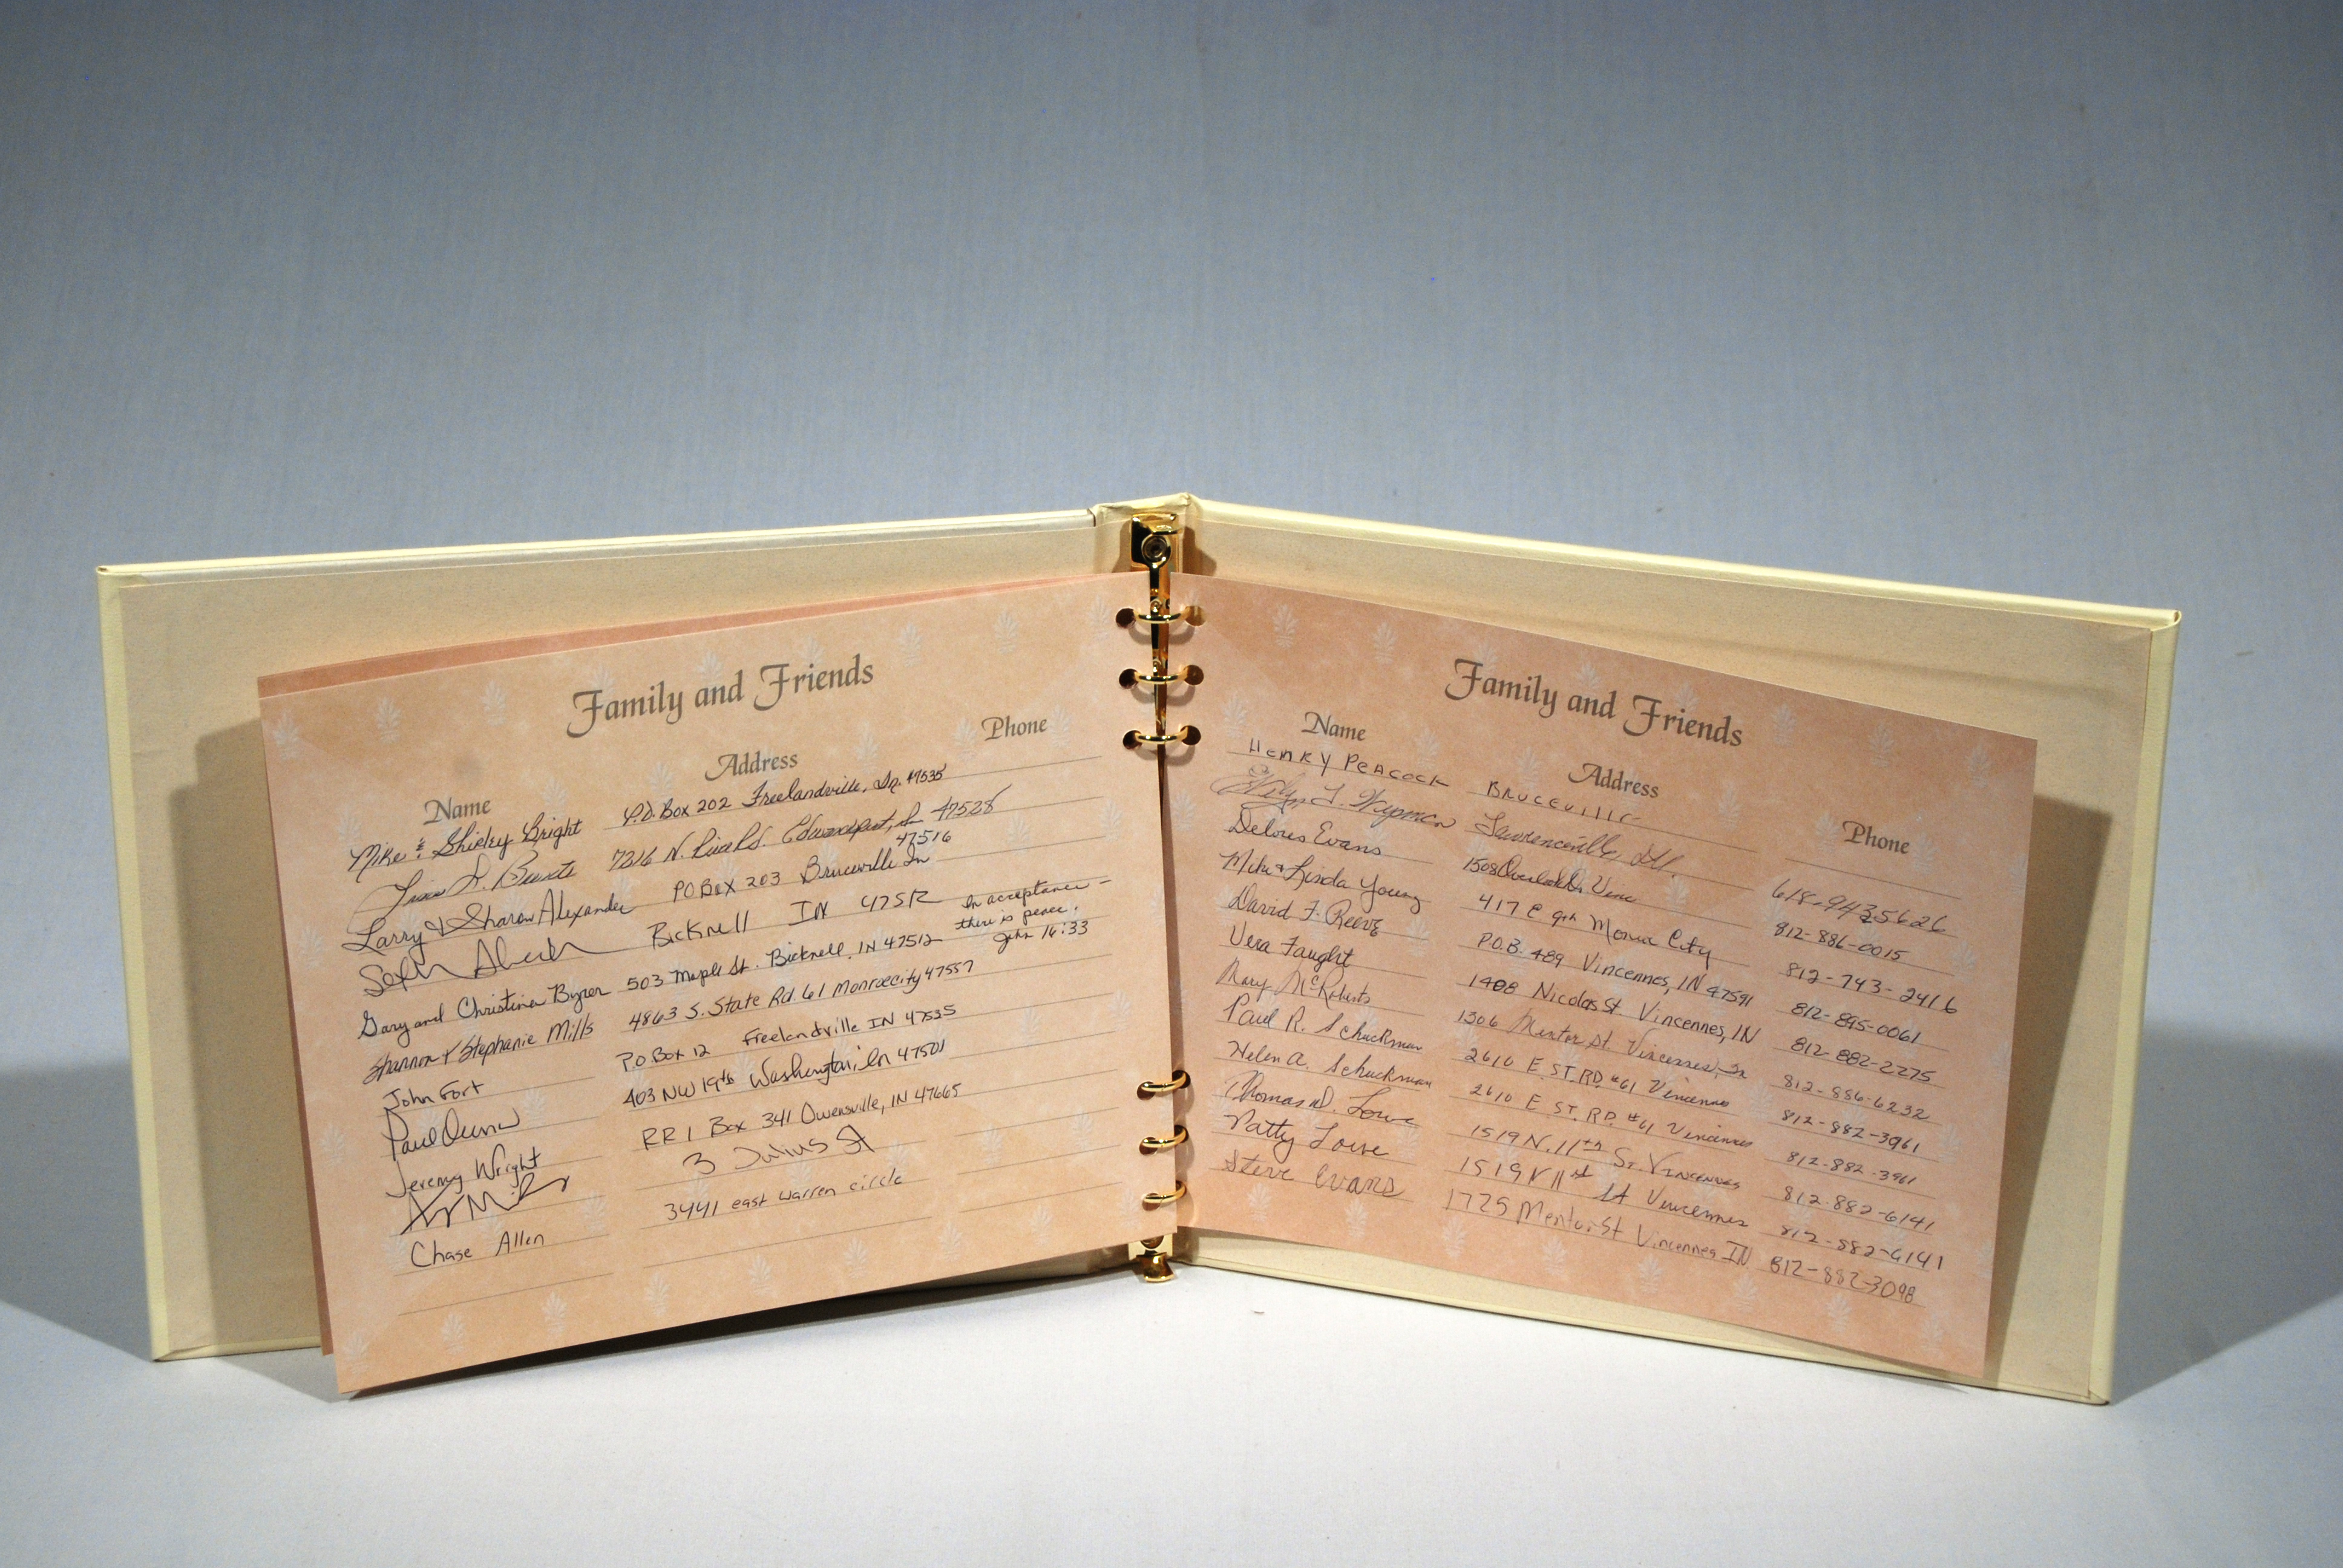 Family and Friends
Name Address Phone
Mike & Shirley Bright P.O. Box 202 Freelandville, In. 47535
7316 N. Edwardsport, In 47528
47516
Larry & Sharon Alexander PO Box 203 Bruceville In
Seth Bicknell IN 47512 In acceptance -
there is peace.
Gary and Christina Byrer 503 Maple St. Bicknell, IN 47512 John 16:33
Shannon & Stephanie Mills 4863 S. State Rd. 61 Monroe City 47557
John Fort P.O Box 12 Freelandville IN 47535
Paul Dunn 403 NW 19th Washington, In 47501
Jeremy Wright RR 1 Box 341 Owensville, IN 47665
3 Julius St
Chase Allen 3441 east warren circle
Family and Friends
Name Address Phone
Henry Peacock Bruceville
L. Wepman Lawrenceville, Ill. 618-9435626
Delores Evans 1508 Vinc 812-886-0015
Mike & Linda Young 417 E 9th Monroe City 812-743-2416
David F. Reeve P.O.B. 489 Vincennes, IN 47591 812-895-0061
Vera Faught 1408 Nicolas St Vincennes, IN 812-882-2275
Mary McRoberts 1306 Mentor St. Vincennes, In 812-886-6232
Paul R. Schuckman 2610 E ST. RD. #61 Vincennes 812-882-3961
Helen A. Schuckman 2610 E ST. RD. #61 Vincennes 812-882-3961
Thomas D. Lowe 1519 N. 11th St. Vincennes 812-882-6141
Patty Lowe 1519 N 11th St Vincennes 812-882-6141
Steve Evans 1725 Mentor St Vincennes IN 812-882-3098